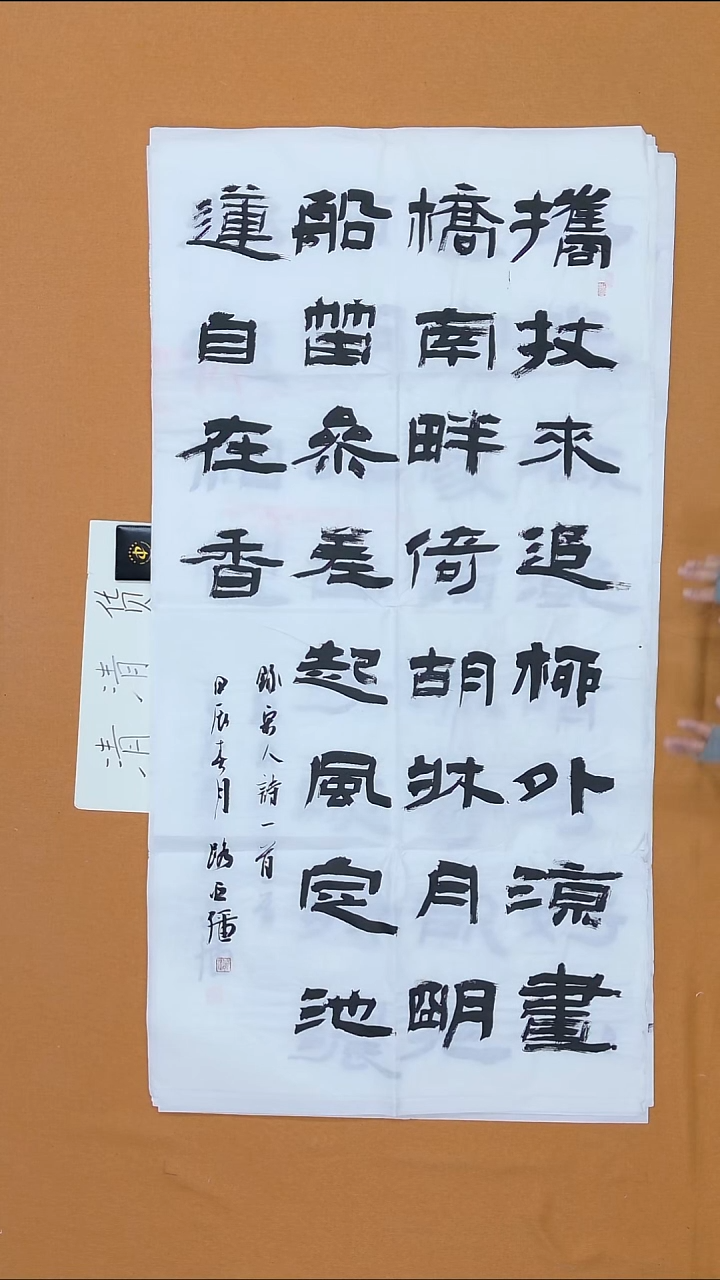 攜杖來追柳外涼畫
橋南畔倚胡牀月明
船笛參差起風定池
蓮自在香
錄宋人詩一首
甲辰春月 路疆
清清货